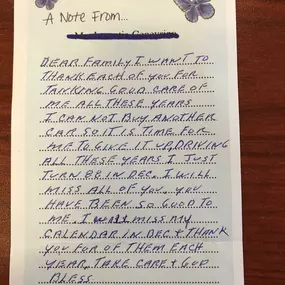 A Note From...
DEAR FAMILY I WANT TO
THANK EACH OF YOU FOR
TANKING GOOD CARE OF
ME ALL THESE YEARS
I CAN NOT BUY ANOTHER
CAR SO IT IS TIME FOR
ME TO GIVE IT UP, DRIVING
ALL THESE YEARS I JUST
TURN 88 IN DEC. I WILL
MISS ALL OF YOU. YOU
HAVE BEEN SO GOOD TO
ME. I WILL MISS MY
CALENDAR IN DEC + THANK
YOU FOR OF THEM EACH
YEAR. TAKE CARE + GOD
BLESS